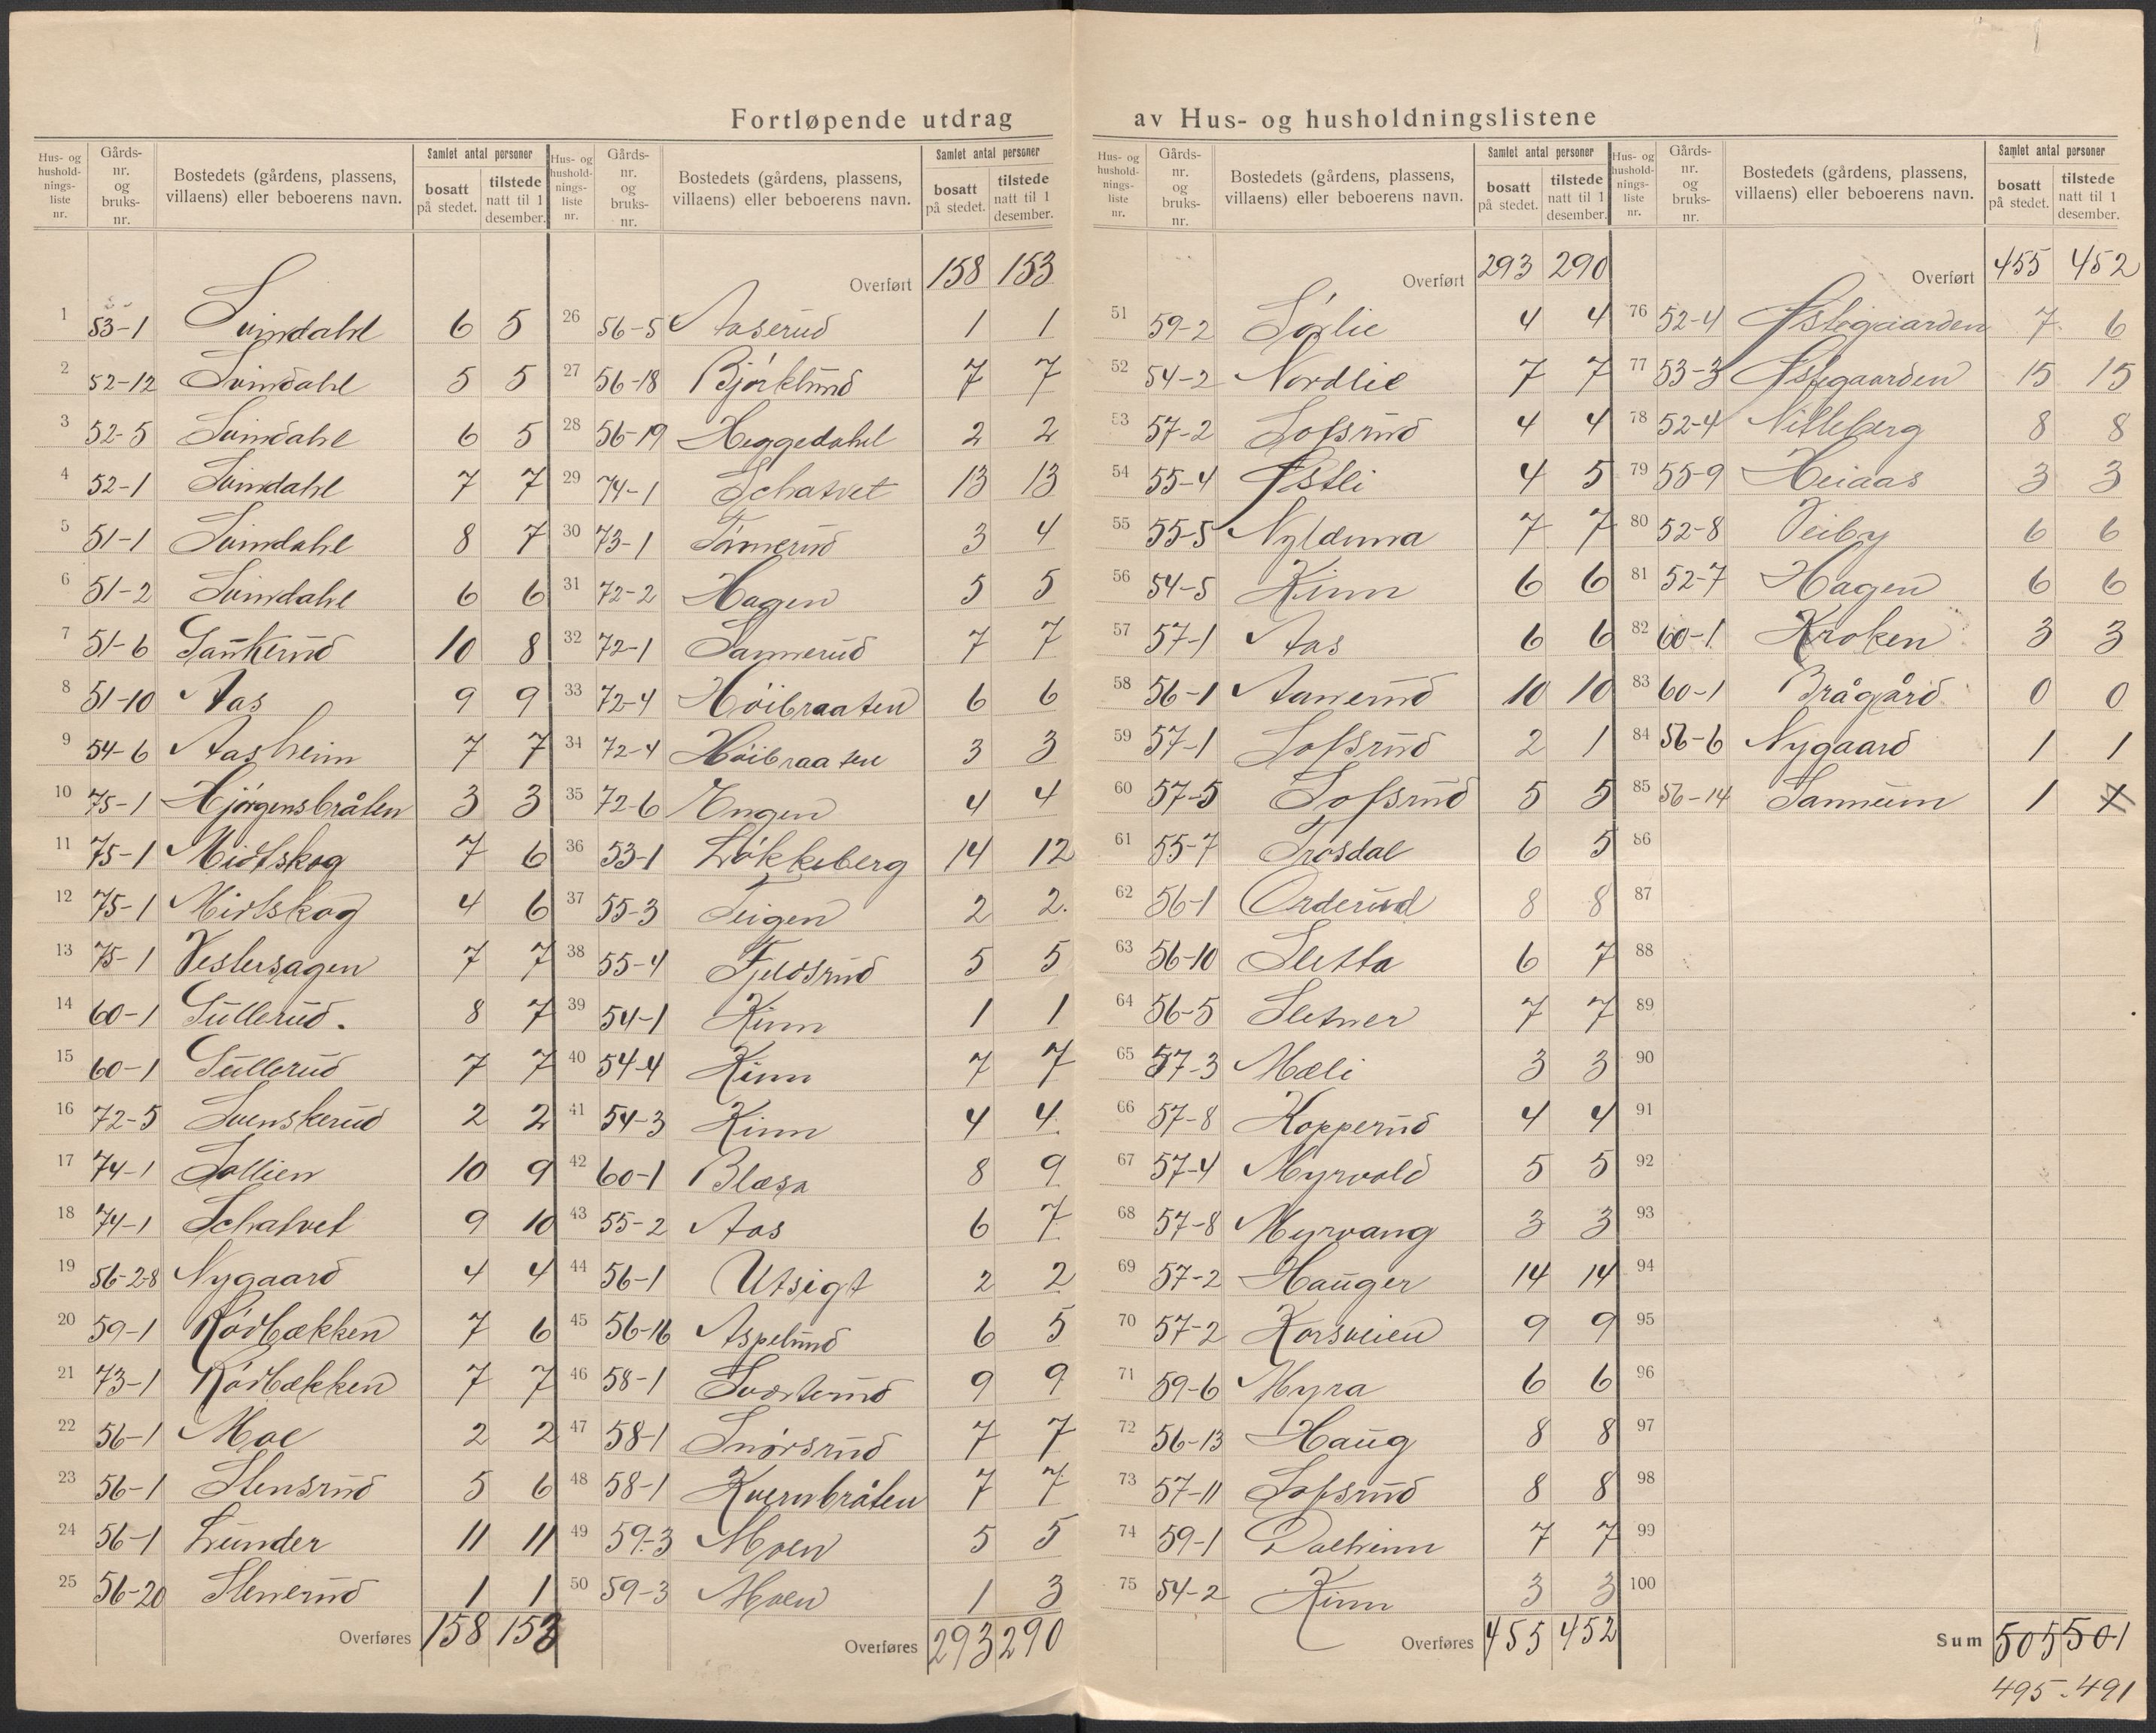 Fortløpende utdrag av Hus- og husholdningslistene
Hus- og husholdnings-liste nr. Gårds-nr. og bruks-nr. Bostedets (gårdens, plassens, villaens) eller beboerens navn. Samlet antal personer bosatt på stedet. tilstede natt til 1 desember.
1 53-1 Svindahl 6 5
2 52-12 Svindahl 5 5
3 52-5 Svindahl 6 5
4 52-1 Svindahl 7 7
5 51-1 Svindahl 8 7
6 51-2 Svindahl 6 6
7 51-6 Sankerud 10 8
8 51-10 Aas 9 9
9 54-6 Aasheim 7 7
10 75-1 Hjørgensbråten 3 3
11 75-1 Midtskog 7 6
12 75-1 Midtskog 4 6
13 75-1 Vestersagen 7 7
14 60-1 Gullerud. 8 7
15 60-1 Gullerud 7 7
16 72-5 Svenskerud 2 2
17 74-1 Sollien 10 9
18 74-1 Schatvet 9 10
19 56-28 Nygaard 4 4
20 59-1 Rødbækken 7 6
21 73-1 Rødbækken 7 7
22 56-1 Moe 2 2
23 56-1 Stensrud 5 6
24 56-1 Lunder 11 11
25 56-20 Stenerud 1 1
Overføres 158 153
Hus- og husholdnings-liste nr. Gårds-nr. og bruks-nr. Bostedets (gårdens, plassens, villaens) eller beboerens navn. Samlet antal personer bosatt på stedet. tilstede natt til 1 desember.
Overført 158 153
26 56-5 Aaserud 1 1
27 56-18 Bjørklund 7 7
28 56-19 Heggedahl 2 2
29 74-1 Schatvet 13 13
30 73-1 Tømerud 3 4
31 72-2 Hagen 5 5
32 72-1 Sannerud 7 7
33 72-4 Høibraaten 6 6
34 72-4 Høibraaten 3 3
35 72-6 Engen 4 4
36 53-1 Løkkeberg 14 12
37 55-3 Teigen 2 2.
38 55-4 Fjeldsrud 5 5
39 54-1 Kinn 1 1
40 54-4 Kinn 7 7
41 54-3 Kinn 4 4
42 60-1 Blæsa 8 9
43 55-2 Aas 6 7
44 56-1 Utsigt 2 2
45 56-16 Aspelund 6 5
46 58-1 Svarterud 9 9
47 58-1 Snørsrud 7 7
48 58-1 Kvernbråten 7 7
49 59-3 Moen 5 5
50 59-3 Moen 1 3
Overføres 293 290
Hus- og husholdnings-liste nr. Gårds-nr. og bruks-nr. Bostedets (gårdens, plassens, villaens) eller beboerens navn. Samlet antal personer bosatt på stedet. tilstede natt til 1 desember.
Overført 293 290
51 59-2 Sørlie 4 4
52 54-2 Nordlie 7 7
53 57-2 Lofsrud 4 4
54 55-4 Østli 4 5
55 55-5 Nylænna 7 7
56 54-5 Kinn 6 6
57 57-1 Aas 6 6
58 56-1 Aanerud 10 10
59 57-1 Lofsrud 2 1
60 57-5 Lofsrud 5 5
61 55-7 Trosdal 6 5
62 56-1 Orderud 8 8
63 56-10 Sletta 6 7
64 56-5 Sletner 7 7
65 57-3 Mæli 3 3
66 57-8 Kopperud 4 4
67 57-4 Myrvold 5 5
68 57-8 Myrvang 3 3
69 57-2 Hauger 14 14
70 57-2 Korsveien 9 9
71 59-6 Myra 6 6
72 56-13 Haug 8 8
73 57-11 Lofsrud 8 8
74 59-1 Dalheim 7 7
75 54-2 Kinn 3 3
Overføres 455 452
Hus- og husholdnings-liste nr. Gårds-nr. og bruks-nr. Bostedets (gårdens, plassens, villaens) eller beboerens navn. Samlet antal personer bosatt på stedet. tilstede natt til 1 desember.
Overført 455 452
76 52-4 Østegaarden 7 6
77 53-3 Østegaarden 15 15
78 52-4 Nitteberg 8 8
79 55-9 Heiaas 3 3
80 52-8 Veiby 6 6
81 52-7 Hagen 6 6
82 60-1 Kroken 3 3
83 60-1 Brågård 0 0
84 56-6 Nygaard 1 1
85 56-14 Sannum 1
86
87
88
89
90
91
92
93
94
95
96
97
98
99
100
Sum 505 501
495 - 491